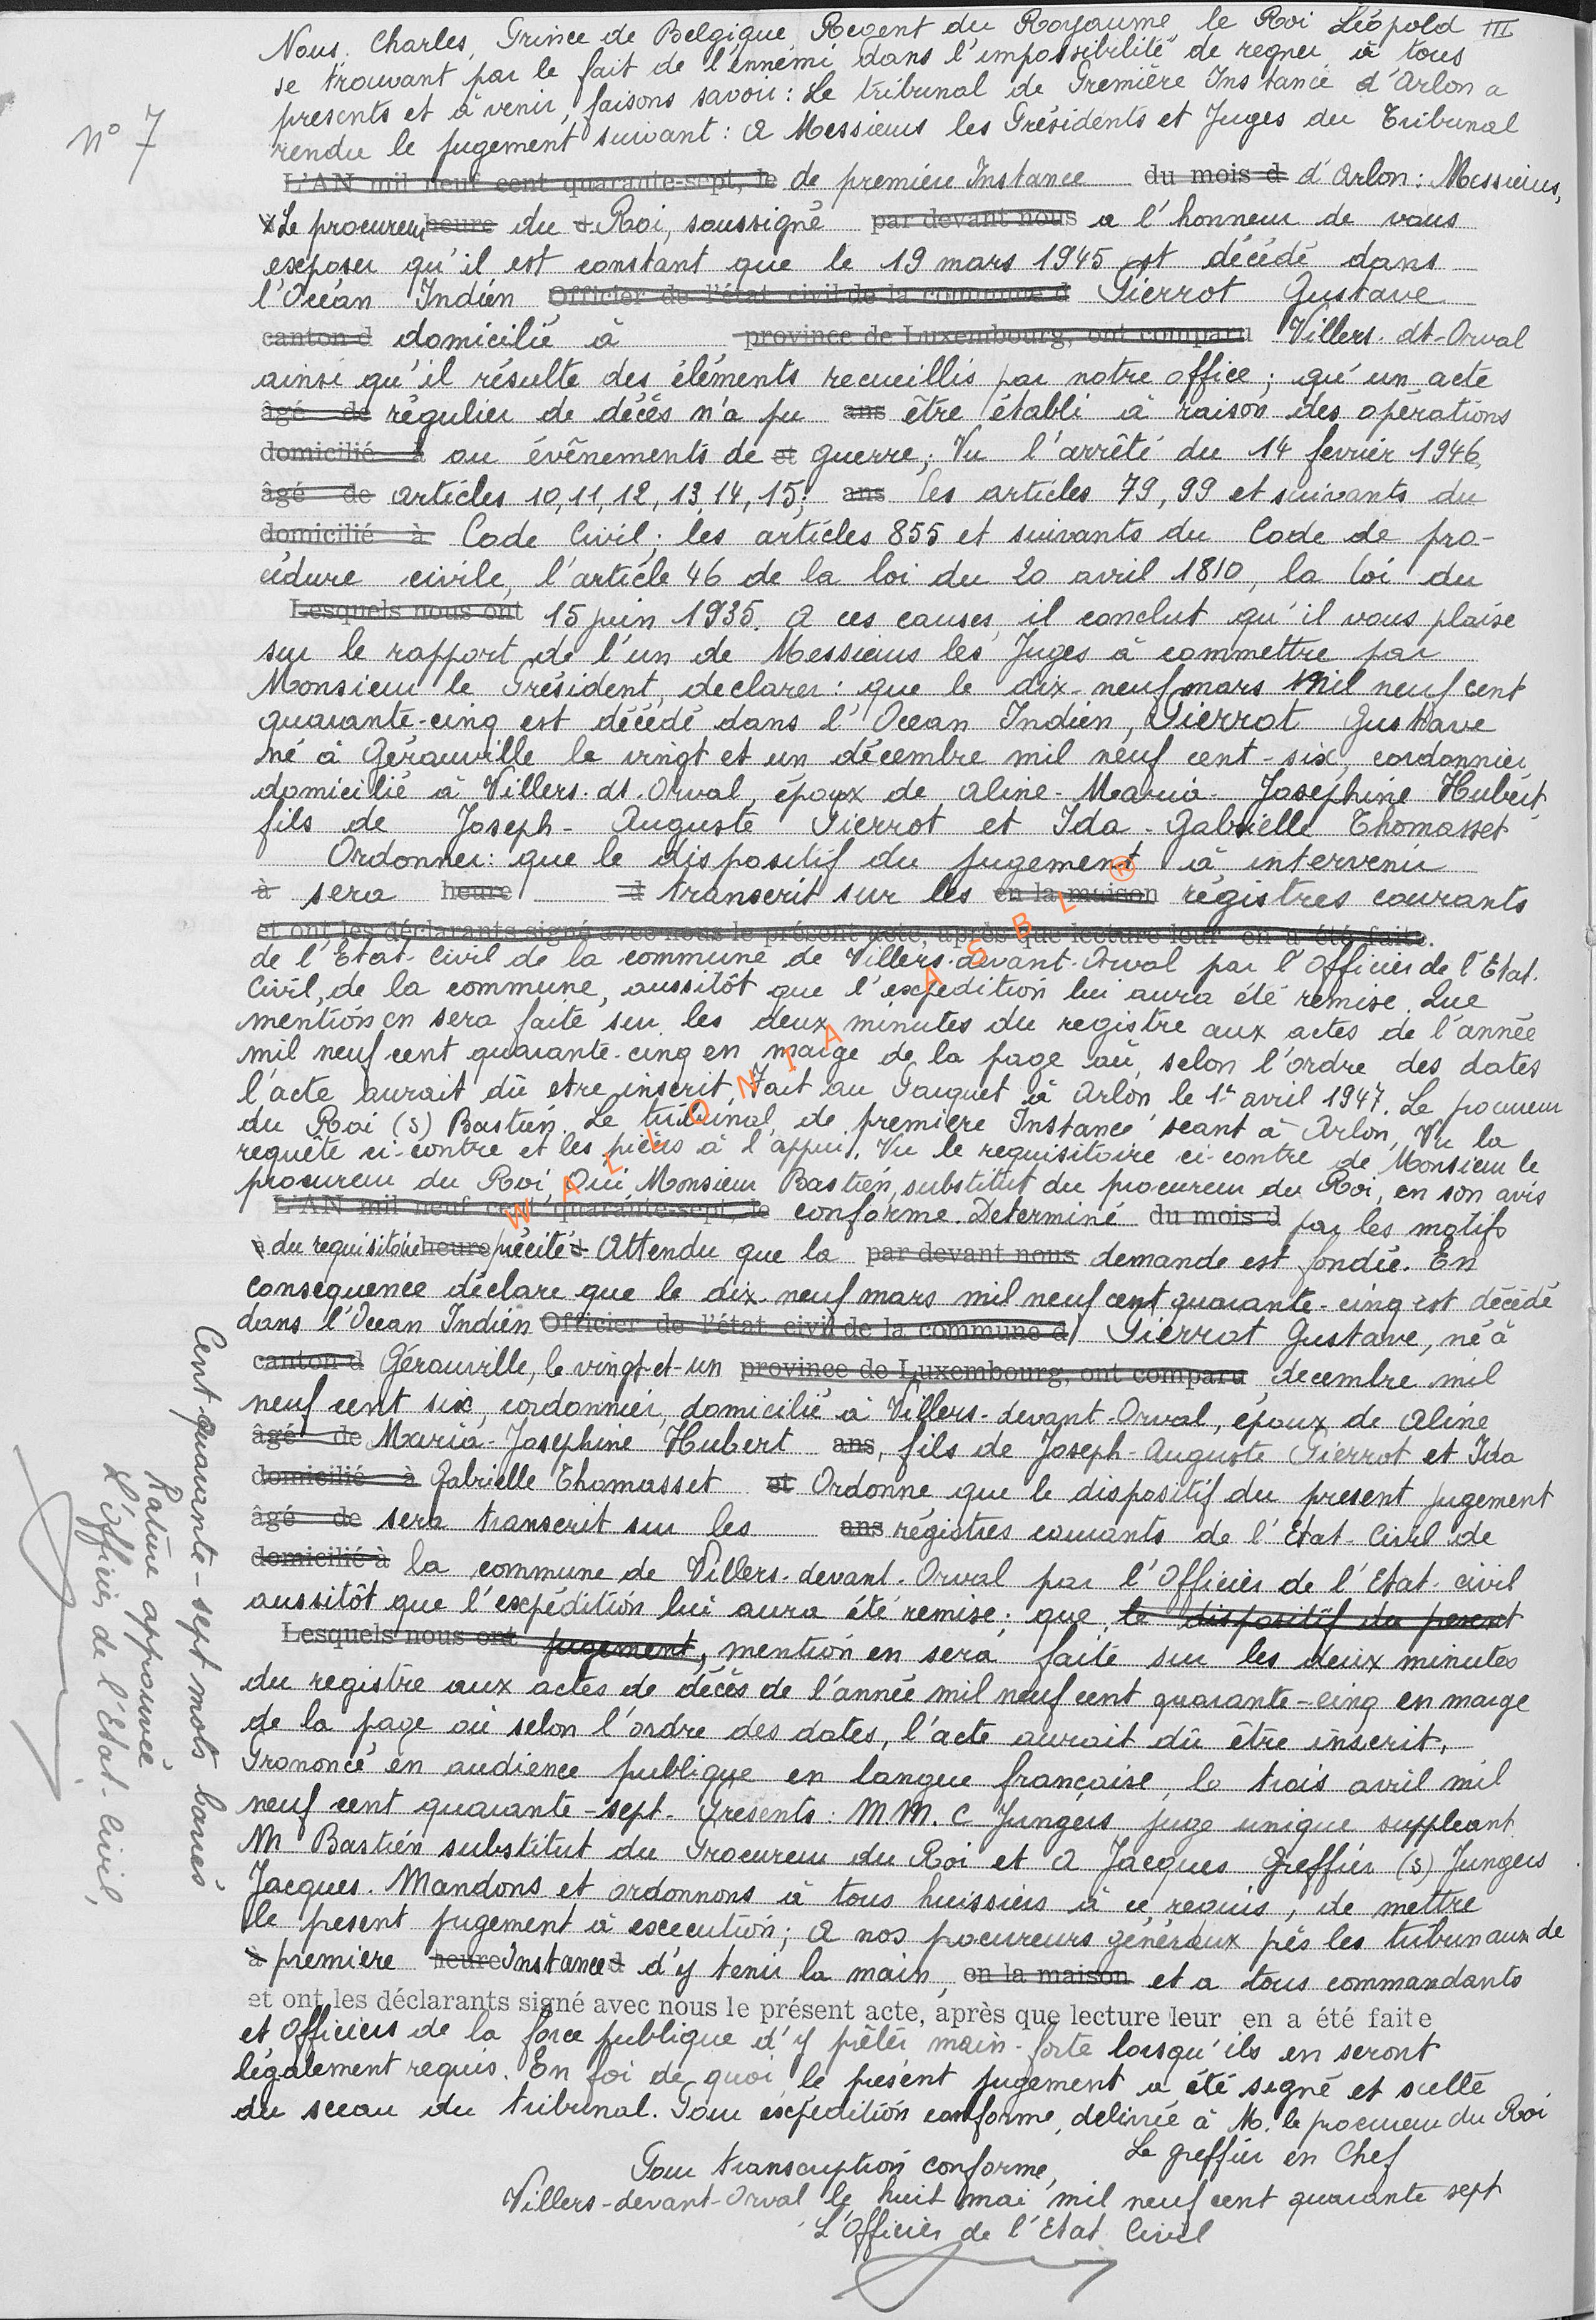 Nous, Charles, Prince de Belgique, Regent du Royaume, le Roi Léopold III
se trouvant par le fait de l'ennemi dans l'impossibilité de regner, à tous
presents et à venir, faisons savoir: Le tribunal de Première Instance d'Arlon a
rendu le jugement suivant: A Messieurs les Présidents et Juges du Tribunal
N° 7
L'AN mil neuf cent quarante-sept, le de premiere Instance du mois d d'Arlon: Messieurs,
Le procureur heure du d Roi, soussigné par devant nous a l'honneur de vous
exposer qu'il est constant que le 19 mars 1945 est décédé dans
l'Océan Indien Officier de l'état civil de la commune d Pierrot Gustave
canton d domicilié à province de Luxembourg, ont comparu Villers-dt-Orval
ainsi qu'il résulte des éléments recueillis par notre office; qu'un acte
âgé de régulier de décès n'a pu ans être établi à raison des opérations
domicilié à ou évênements de et guerre; Vu l'arrêté du 14 fevrier 1946,
âgé de articles 10, 11, 12, 13, 14, 15; ans les articles 79, 99 et suivants du
domicilié à Code Civil; les articles 855 et suivants du Code de pro-
cédure civile, l'article 46 de la loi du 20 avril 1810, la loi du
Lesquels nous ont 15 juin 1935. A ces causes, il conclut qu'il vous plaise
sur le rapport de l'un de Messieurs les Juges à commettre par
Monsieur le Président, declarer: que le dix-neuf mars mil neuf cent
quarante-cinq est décédé dans l'Ocean Indien, Pierrot Gustave
né à Gérouville le vingt et un décembre mil neuf cent-six, cordonnier
domicilié à Villers-dt-Orval, époux de Aline-Maria-Joséphine Hubert,
fils de Joseph-Auguste Pierrot et Ida-Gabrielle Thomasset
Ordonner: que le dispositif du jugement à intervenir
à sera heure d transcrit sur les en la maison régistres courants
et ont les déclarants signé avec nous le présent acte, après que lecture leur en a été faite.
de l'Etat-Civil de la commune de Villers-devant-Orval par l'Officier de l'Etat-
Civil, de la commune, aussitôt que l'expedition lui aura été remise. Que
mention en sera faite sur les deux minutes du registre aux actes de l'année
mil neuf cent quarante-cinq en marge de la page où, selon l'ordre des dates
l'acte aurait dû etre inscrit. Fait au Parquet à Arlon le 1er avril 1947. Le procureur
du Roi (s) Bastien. Le tribunal de premiere Instance seant à Arlon, Vu la
requête ci-contre et les pièces à l'appui. Vu le requisitoire ci-contre de Monsieur le
procureur du Roi, Oui Monsieur Bastien, substitut du procureur du Roi, en son avis
L'AN mil neuf cent quarante-sept, le conforme. Determiné du mois d par les motifs
à du requisitoire heure précité d Attendu que la par devant nous demande est fondée. En
consequence déclare que le dix-neuf mars mil neuf cent quarante-cinq est décédé
dans l'Ocean Indien Officier de l'état civil de la commune d Pierrot Gustave, né à
canton d Gérouville, le vingt-et-un province de Luxembourg, ont comparu decembre mil
neuf cent six, cordonnier, domicilié à Villers-devant-Orval, époux de Aline
âgé de Maria-Josephine Hubert ans, fils de Joseph-Auguste Pierrot et Ida
domicilié à Gabrielle Thomasset et Ordonne que le dispositif du present jugement
âgé de sera transcrit sur les ans régistres courants de l'Etat-Civil de
domicilié à la commune de Villers-devant-Orval par l'Officier de l'Etat-civil
aussitôt que l'expédition lui aura été remise; que le dispositif du present
Lesquels nous ont jugement, mention en sera faite sur les deux minutes
du registre aux actes de décès de l'année mil neuf cent quarante-cinq en marge
de la page où selon l'ordre des dates, l'acte aurait dû être inscrit.
Prononcé en audience publique en langue française, le trois avril mil
neuf cent quarante-sept. Présents: MM. C Jungers juge unique suppleant
M Bastien substitut du Procureur du Roi et A Jacques Greffier (s) Jungers
Jacques. Mandons et ordonnons à tous huissiers à ce requis, de mettre
le present jugement à execution; A nos procureurs généraux près les tribunaux de
à premiere heure Instance d d'y tenir la main, en la maison et a tous commandants
et ont les déclarants signé avec nous le présent acte, après que lecture leur en a été faite
et Officiers de la force publique d'y prêter main-forte lorsqu'ils en seront
légalement requis. En foi de quoi le présent jugement a été signé et scellé
du sceau du tribunal. Pour expédition conforme, delivrée à M. le procureur du Roi
Le greffier en Chef
Pour transcription conforme,
Villers-devant-Orval le huit mai mil neuf cent quarante sept
L'Officier de l'Etat Civil
Cent-quarante-sept mots barrés
Rature approuvée
L'Officier de l'Etat-Civil,
WALLONIA ASBL ®